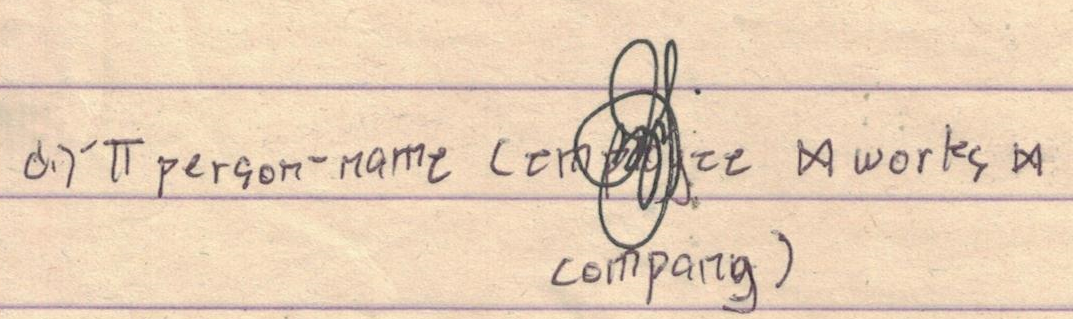 d.) π person-name (employee ⋈ works ⋈
company)